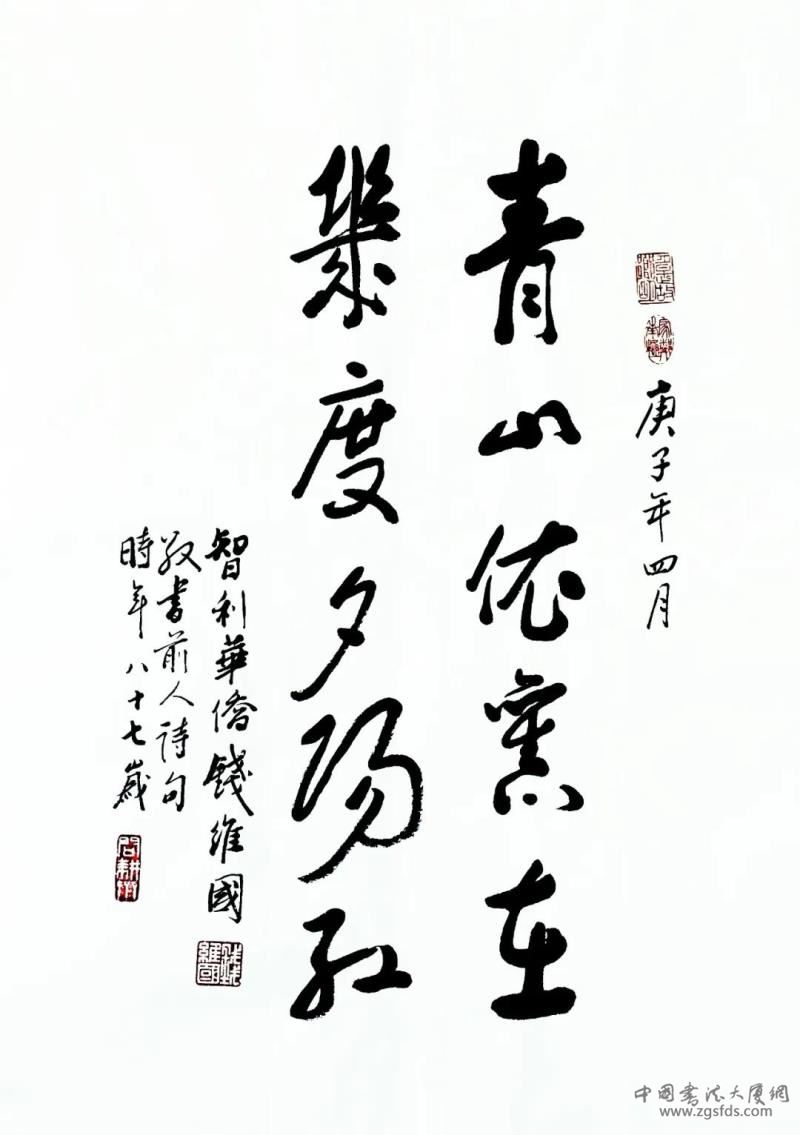 庚子年四月
青山依舊在
幾度夕陽紅
智利華僑錢維國
敬書前人詩句
時年八十七歲
錢維國
中國書法大廈網
www.zgsfds.com